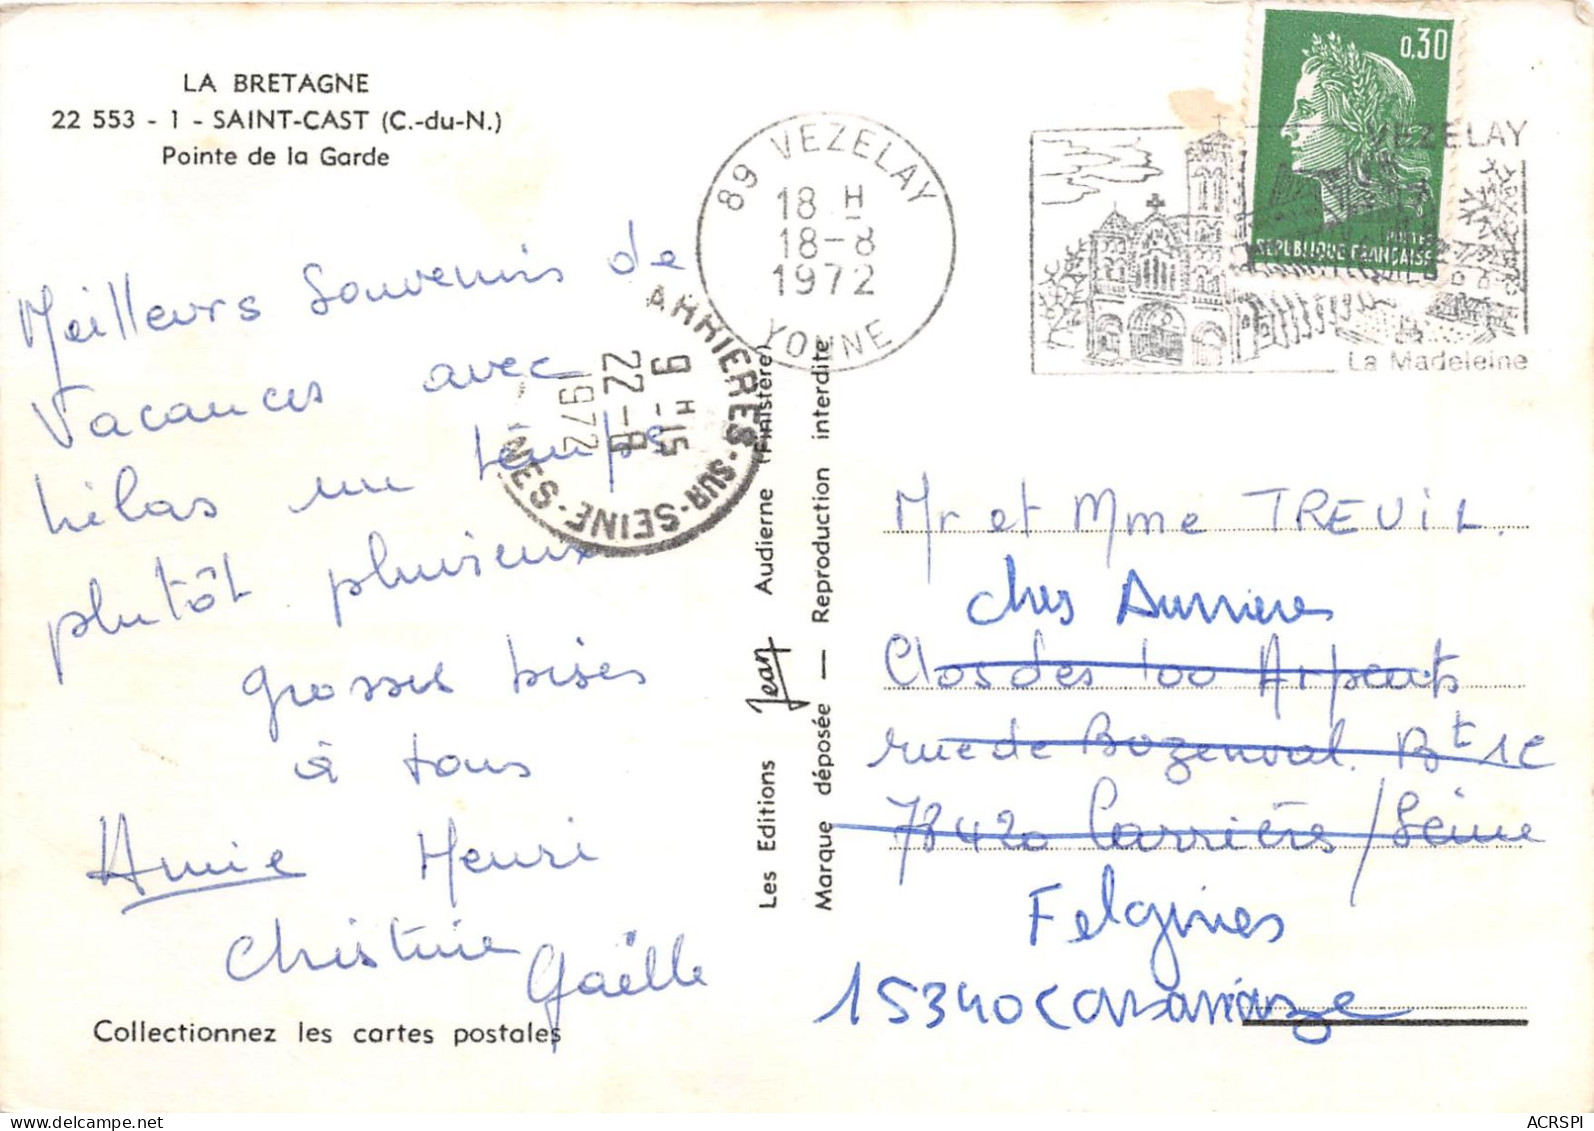 LA BRETAGNE
22 553 - 1 - SAINT-CAST (C.-du-N.)
Pointe de la Garde
Meilleurs Souvenirs de
Vacances avec
hélas un temps
plutôt pluvieux
grosses bises
à tous
Annie Henri
Christine Gaëlle
Collectionnez les cartes postales
89 VEZELAY
18 H
18-8
1972
YONNE
ARRIERES-SUR-SEINE-
9 H 15
22-8
1972
Les Editions Jean Audierne (Finistère)
Marque déposée — Reproduction interdite
0,30
POSTES
REPUBLIQUE FRANÇAISE
VEZELAY
La Madeleine
Mr et Mme TREUIL.
chez Durrieu
Clos des 100 Arpents
rue de Buzenval. Bt 1C
78420 Carrières/Seine
Felgines
15340 Cassaniouze
ACRSPI